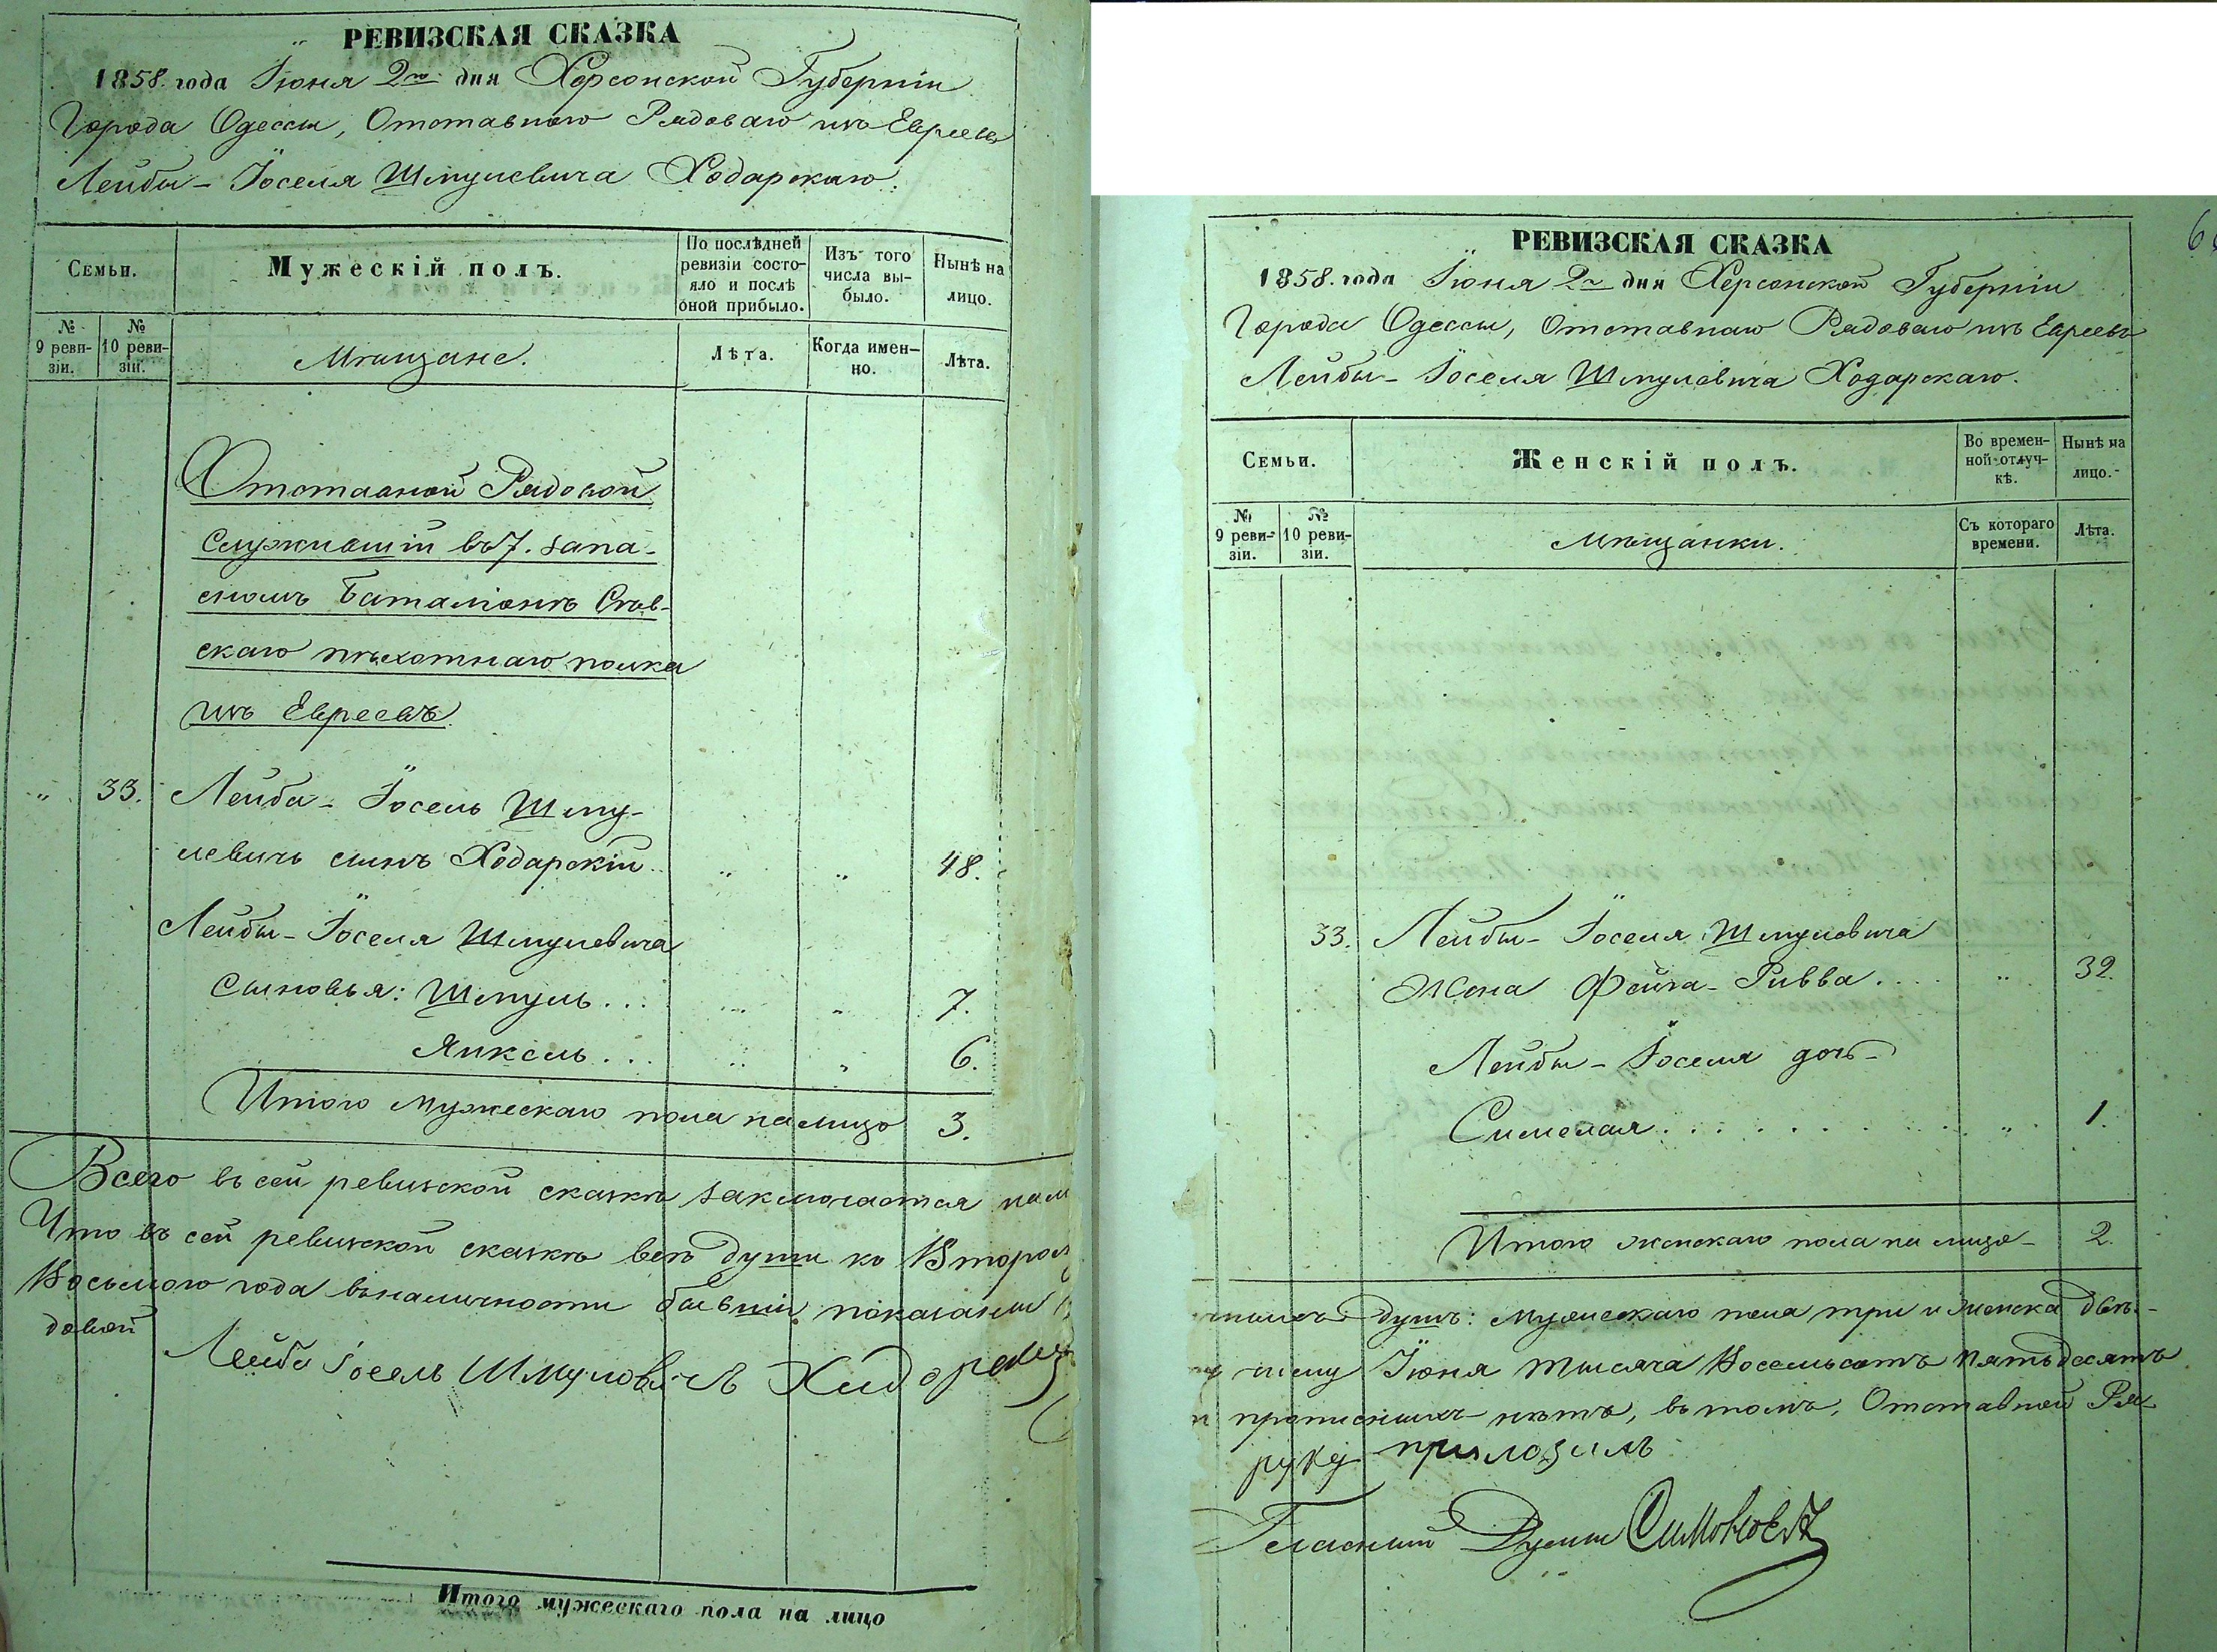 РЕВИЗСКАЯ СКАЗКА
1858. года Іюня 2го дня Херсонской Губерніи
Города Одессы, Отставнаго Рядоваго изъ Евреевъ
Лейбы-Іоселя Шмулевича Ходарскаго.
Семьи.
Мужескій полъ.
По послѣдней
ревизіи состо-
яло и послѣ
оной прибыло.
Изъ того
числа вы-
было.
Нынѣ на
лицо.
№
9 реви-
зіи.
№
10 реви-
зіи.
Мѣщане.
Лѣта.
Когда имен-
но.
Лѣта.
Отставной Рядовой
Служившій въ 7. запа-
сномъ баталіонѣ Сѣв-
скаго пѣхотнаго полка
изъ Евреевъ.
" 33. Лейба-Іосель Шму-
левичъ сынъ Ходарскій " " 48.
Лейбы-Іоселя Шмулевича
Сыновья: Шмуль... " " 7.
Янкель... " " 6.
Итого мужескаго пола на лицо 3.
Всего въ сей ревизской сказкѣ заключается
Что въ сей ревизской сказкѣ всѣ души ко
Восьмого года въ наличности бывшія, показаны
довой
Лейба Іосель Шмуловичъ
Итого мужескаго пола на лицо
РЕВИЗСКАЯ СКАЗКА
1858. года Іюня 2го дня Херсонской Губерніи
Города Одессы, Отставнаго Рядоваго изъ Евреевъ
Лейбы-Іоселя Шмулевича Ходарскаго.
Семьи.
Женскій полъ.
Во времен-
ной отлуч-
кѣ.
Нынѣ на
лицо.
№
9 реви-
зіи.
№
10 реви-
зіи.
Мѣщанки.
Съ котораго
времени.
Лѣта.
33. Лейбы-Іоселя Шмулевича
Жена Фейга-Ривва.... " 32.
Лейбы-Іоселя дочь-
" 1.
Итого женскаго пола на лицо- 2.
душъ: мужескаго пола три и женска двѣ.-
Іюня тысяча Восемьсотъ Пятьдесятъ
прописныхъ нѣтъ, въ томъ, Отставной Ря-
руку приложилъ
Гласный Думы Симоновъ